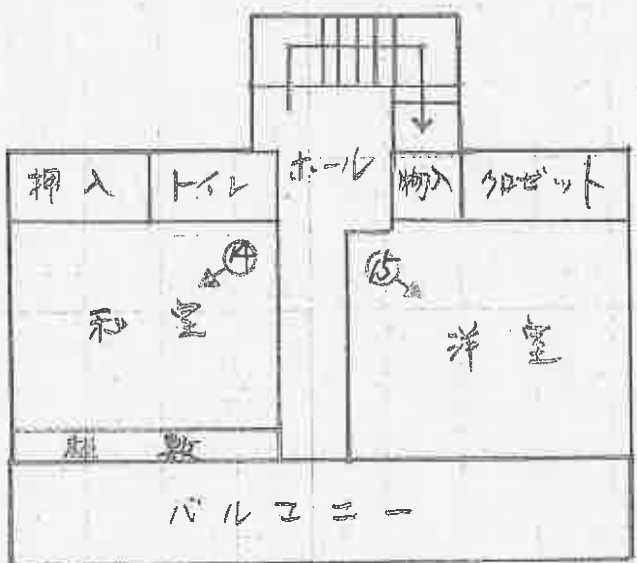 ホール
押入
トイレ
物入
クロゼット
14
15
和室
洋室
板敷
バルコニー